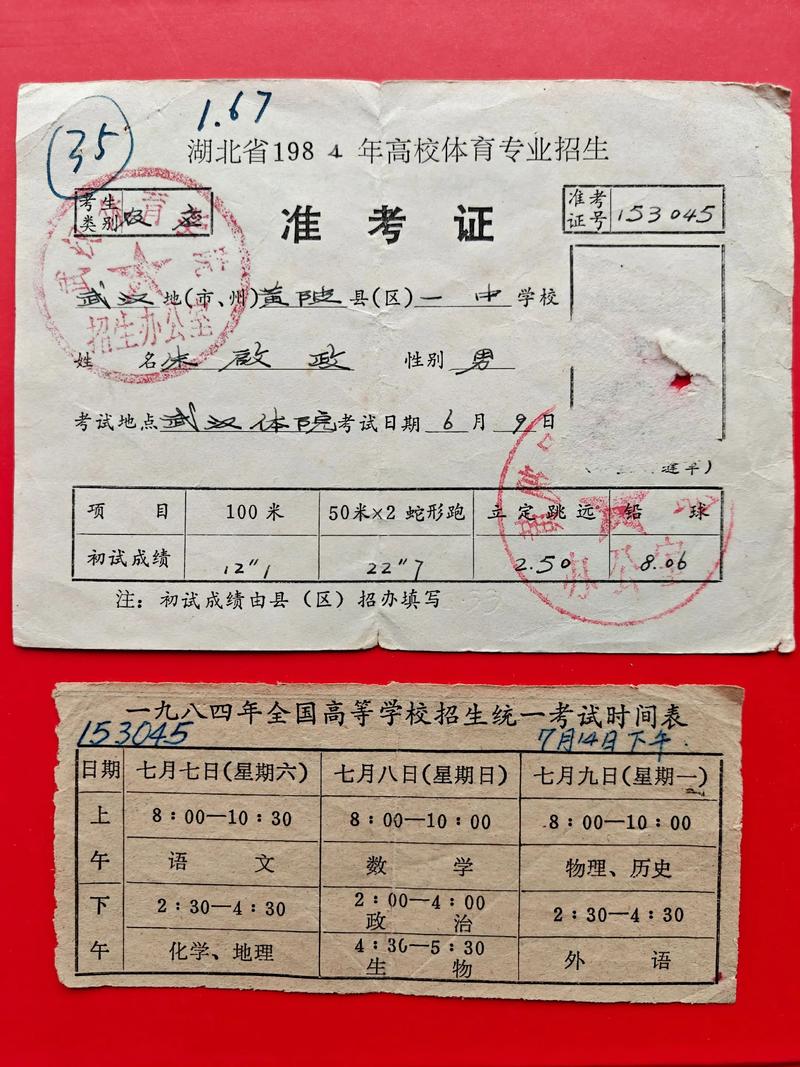 35
1.67
湖北省1984年高校体育专业招生
考生类别 应
准考证
准考证号 153045
武汉地(市、州)黄陂县(区)一中学校
姓名 朱啟政 性别 男
考试地点武汉体院考试日期6月9日
项目 100米 50米×2 蛇形跑 立定跳远 铅球
初试成绩 12"1 22"7 2.50 8.06
注：初试成绩由县（区）招办填写
招生办公室
办公室
一九八四年全国高等学校招生统一考试时间表
153045 7月14日下午.
日期 七月七日(星期六) 七月八日(星期日) 七月九日(星期一)
上午 8：00—10：30 8：00—10：00 8：00—10：00
语文 数学 物理、历史
下午 2：30—4：30 2：00—4：00 2：30—4：30
政治
化学、地理 4：30—5：30 外语
生物